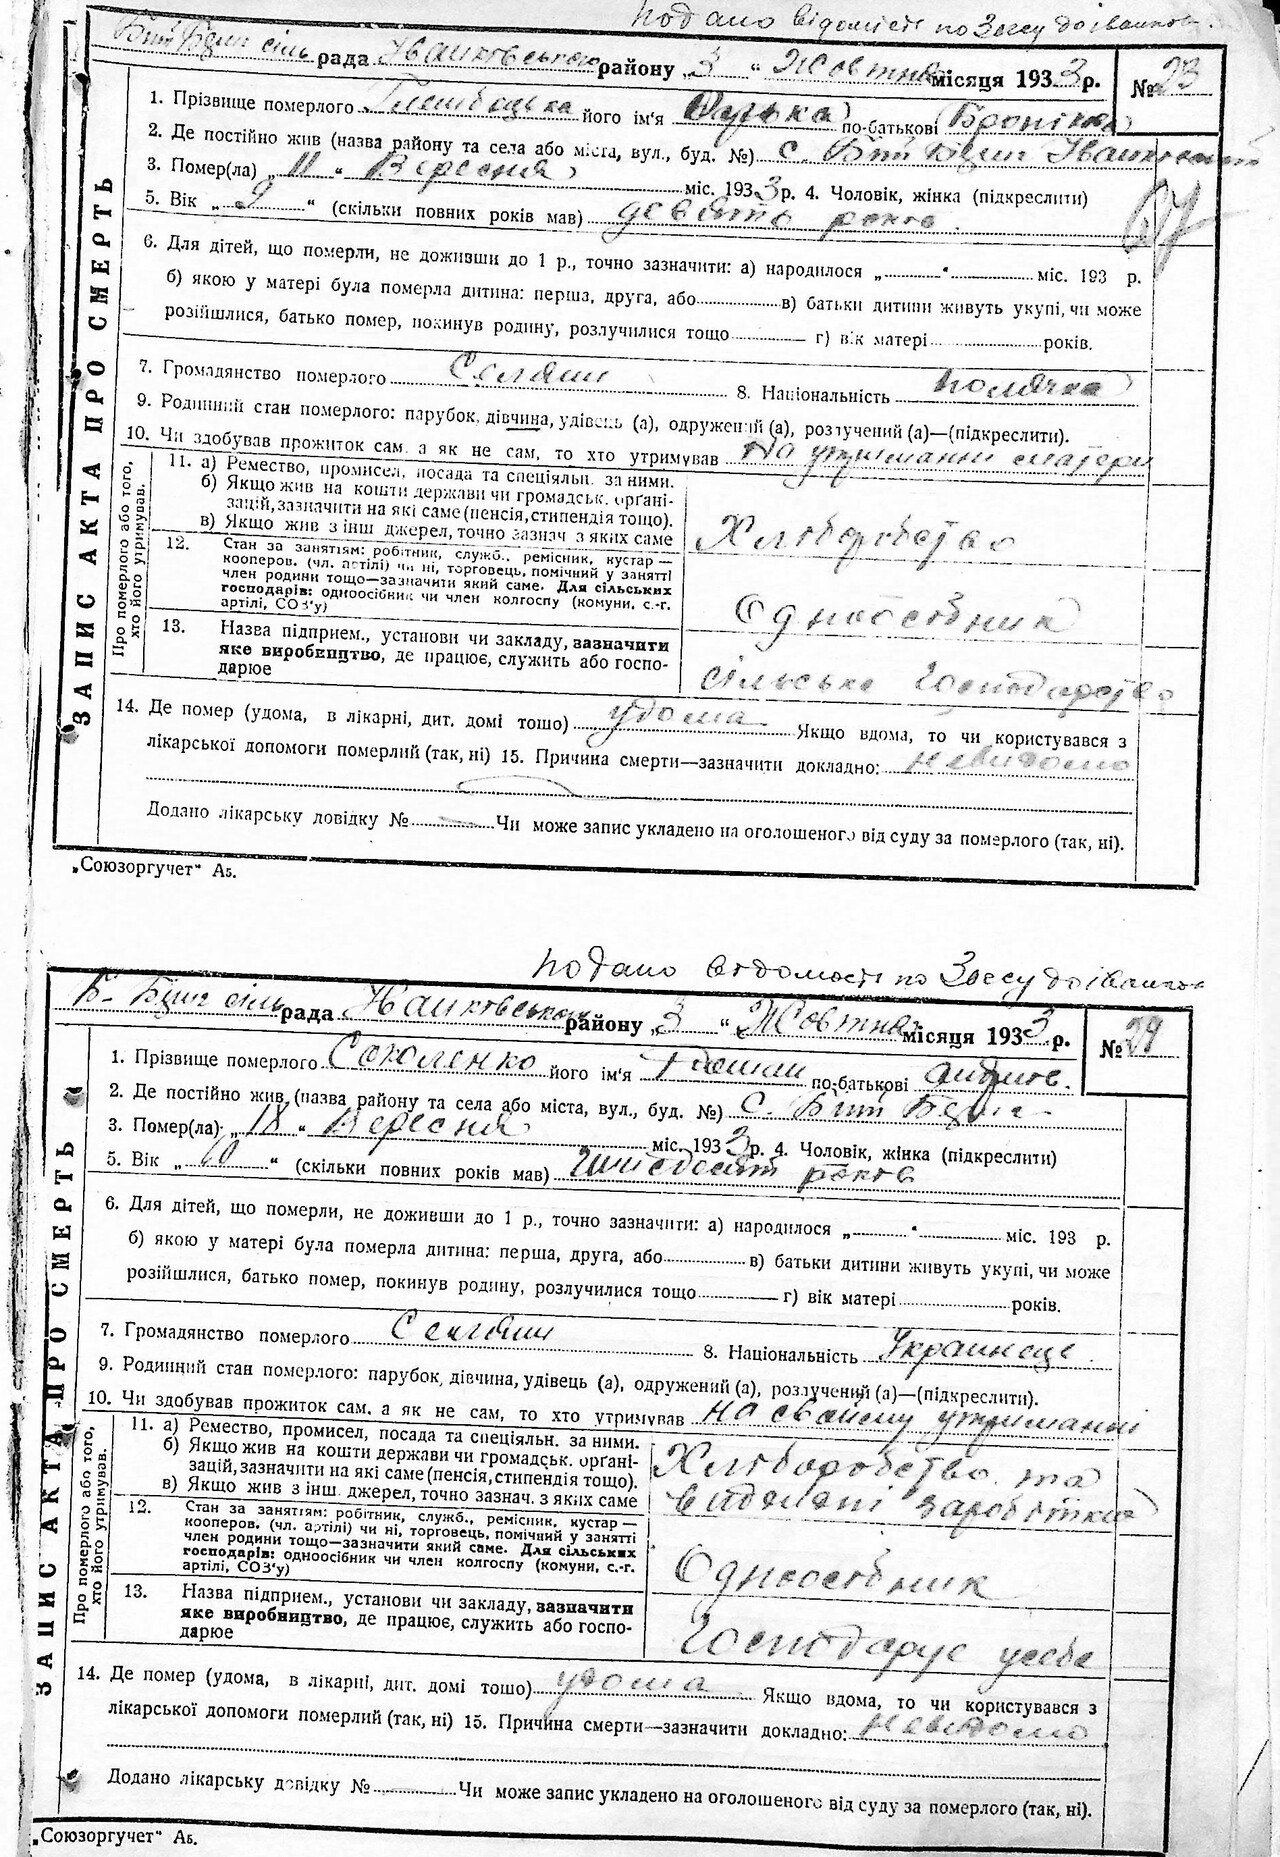 Подано відомість по Загсу до Іванков.
сіль рада Іванківського району „3“ Жовтня місяця 1933 р. № 23
1. Прізвище померлого його ім'я по-батькові
2. Де постійно жив (назва району та села або міста, вул., буд. №) с.
3. Помер(ла) „11“ Вересня міс. 1933 р. 4. Чоловік, жінка (підкреслити)
5. Вік „9“ (скільки повних років мав) девять років.
6. Для дітей, що померли, не доживши до 1 р., точно зазначити: а) народилося „ “ міс. 193 р.
б) якою у матері була померла дитина: перша, друга, або в) батьки дитини живуть укупі, чи може
розійшлися, батько помер, покинув родину, розлучилися тощо г) вік матері років.
7. Громадянство померлого Селяни 8. Національність полячка
9. Родинний стан померлого: парубок, дівчина, удівець (а), одружений (а), розлучений (а)—(підкреслити).
10. Чи здобував прожиток сам, а як не сам, то хто утримував На утриманні матери
ЗАПИС АКТА ПРО СМЕРТЬ
Про померлого або того, хто його утримував.
11. а) Ремество, промисел, посада та спеціяльн. за ними.
б) Якщо жив на кошти держави чи громадськ. орґані-
зацій, зазначити на які саме (пенсія, стипендія тощо).
в) Якщо жив з інш джерел, точно зазнач з яких саме
Хліборобство
12. Стан за занятіям: робітник, служб., ремісник, кустар —
кооперов. (чл. артілі) чи ні, торговець, помічний у занятті
член родини тощо—зазначити який саме. Для сільських
господарів: одноосібник чи член колгоспу (комуни, с.-г.
артілі, СОЗ'у)
Одноосібник
13. Назва підприєм., установи чи закладу, зазначити
яке виробництво, де працює, служить або госпо-
дарює
сільське господарство
14. Де помер (удома, в лікарні, дит. домі тощо) удома Якщо вдома, то чи користувався з
лікарської допомоги померлий (так, ні) 15. Причина смерти—зазначити докладно: невидомо
Додано лікарську довідку № Чи може запис укладено на оголошеного від суду за померлого (так, ні).
„Союзоргучет“ А5.
Подано відомості по Загсу до Іванков
сіль рада Іванківського району „3“ Жовтня місяця 1933 р. № 24
1. Прізвище померлого Соколенко його ім'я по-батькові
2. Де постійно жив (назва району та села або міста, вул., буд. №) с.
3. Помер(ла) „18“ Вересня міс. 1933 р. 4. Чоловік, жінка (підкреслити)
5. Вік „60“ (скільки повних років мав) Шисдесят років
6. Для дітей, що померли, не доживши до 1 р., точно зазначити: а) народилося „ “ міс. 193 р.
б) якою у матері була померла дитина: перша, друга, або в) батьки дитини живуть укупі, чи може
розійшлися, батько помер, покинув родину, розлучилися тощо г) вік матері років.
7. Громадянство померлого Селяни 8. Національність Украинець
9. Родинний стан померлого: парубок, дівчина, удівець (а), одружений (а), розлучений (а)—(підкреслити).
10. Чи здобував прожиток сам, а як не сам, то хто утримував на своїму утриманні
ЗАПИС АКТА ПРО СМЕРТЬ
Про померлого або того, хто його утримував.
11. а) Ремество, промисел, посада та спеціяльн. за ними.
б) Якщо жив на кошти держави чи громадськ. орґані-
зацій, зазначити на які саме (пенсія, стипендія тощо).
в) Якщо жив з інш. джерел, точно зазнач. з яких саме
Хліборобство та
заробітки
12. Стан за занятіям: робітник, служб., ремісник, кустар —
кооперов. (чл. артілі) чи ні, торговець, помічний у занятті
член родини тощо—зазначити який саме. Для сільських
господарів: одноосібник чи член колгоспу (комуни, с.-г.
артілі, СОЗ'у)
Одноосібник
13. Назва підприєм., установи чи закладу, зазначити
яке виробництво, де працює, служить або госпо-
дарює
Господарує усебе
14. Де помер (удома, в лікарні, дит. домі тощо) удома Якщо вдома, то чи користувався з
лікарської допомоги померлий (так, ні) 15. Причина смерти—зазначити докладно: невидомо
Додано лікарську довідку № Чи може запис укладено на оголошеного від суду за померлого (так, ні).
„Союзоргучет“ А5.